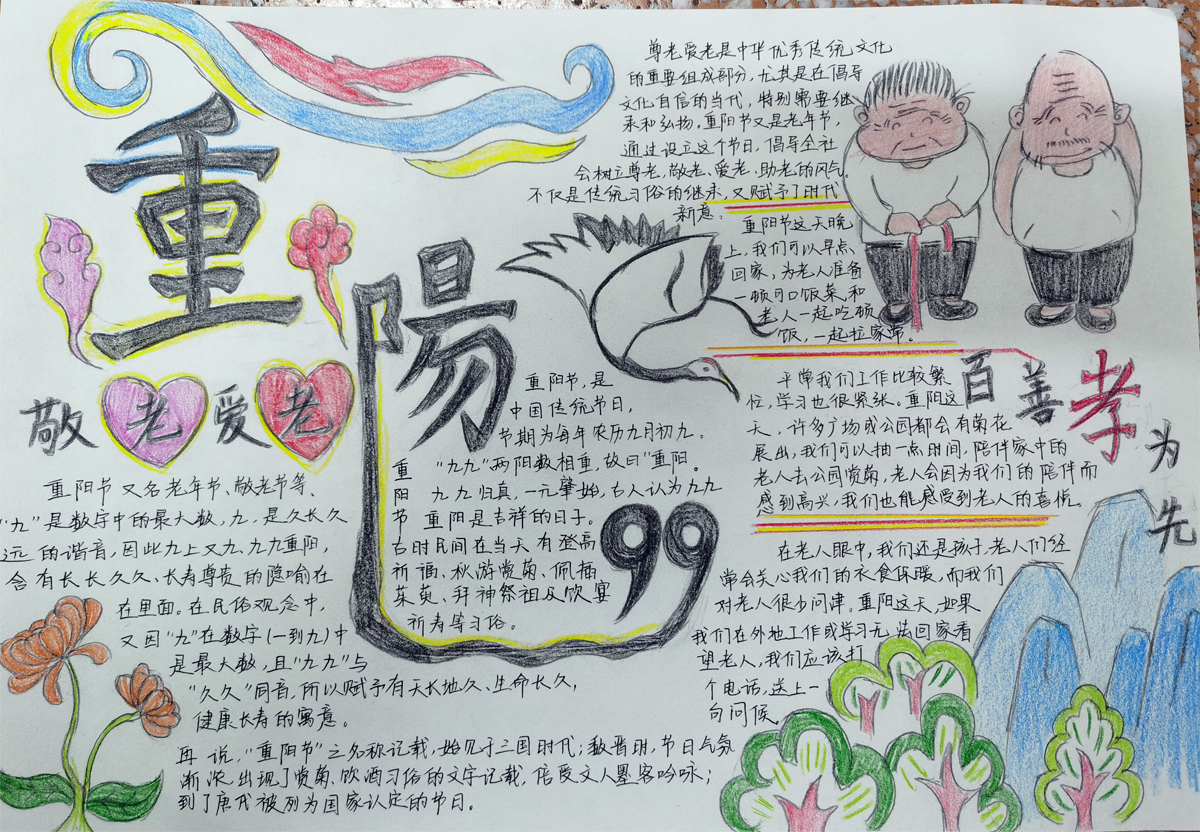 重陽
敬老爱老
尊老爱老是中华优秀传统文化
的重要组成部分，尤其是在倡导
文化自信的当代，特别需要继
承和弘扬。重阳节又是老年节，
通过设立这个节日，倡导全社
会树立尊老、敬老、爱老、助老的风气。
不仅是传统习俗的继承，又赋予了时代
新意。
重阳节这天晚
上，我们可以早点、
回家，为老人准备
一顿可口饭菜，和
老人一起吃顿
饭，一起拉家常。
百善孝为先
平常我们工作比较繁
忙，学习也很紧张。重阳这
天，许多广场或公园都会有菊花
展出，我们可以抽一点时间，陪伴家中的
老人去公园赏菊，老人会因为我们的陪伴而
感到高兴，我们也能感受到老人的喜悦。
在老人眼中，我们还是孩子，老人们经
常会关心我们的衣食保暖，而我们
对老人很少问津。重阳这天，如果
我们在外地工作或学习无法回家看
望老人，我们应该打
个电话，送上一
句问候。
重阳节，是
中国传统节日，
节期为每年农历九月初九。
重阳节
“九九”两阳数相重，故曰“重阳。
九九归真，一元肇始，古人认为九九
重阳是吉祥的日子。
古时民间在当天有登高
祈福、秋游赏菊、佩插
茱萸、拜神祭祖及饮宴
祈寿等习俗。
99
重阳节又名老年节、敬老节等、
“九”是数字中的最大数，九，是久长久
远的谐音，因此九上又九，九九重阳，
含有长长久久、长寿尊贵的隐喻在
在里面。在民俗观念中，
又因“九”在数字(一到九)中
是最大数，且“九九”与
“久久”同音，所以赋予有天长地久、生命长久，
健康长寿的寓意。
再说，“重阳节”之名称记载，始见于三国时代；魏晋明，节日气氛
渐浓，出现了赏菊、饮酒习俗的文字记载，倍受文人墨客吟咏；
到了唐代被列为国家认定的节日。